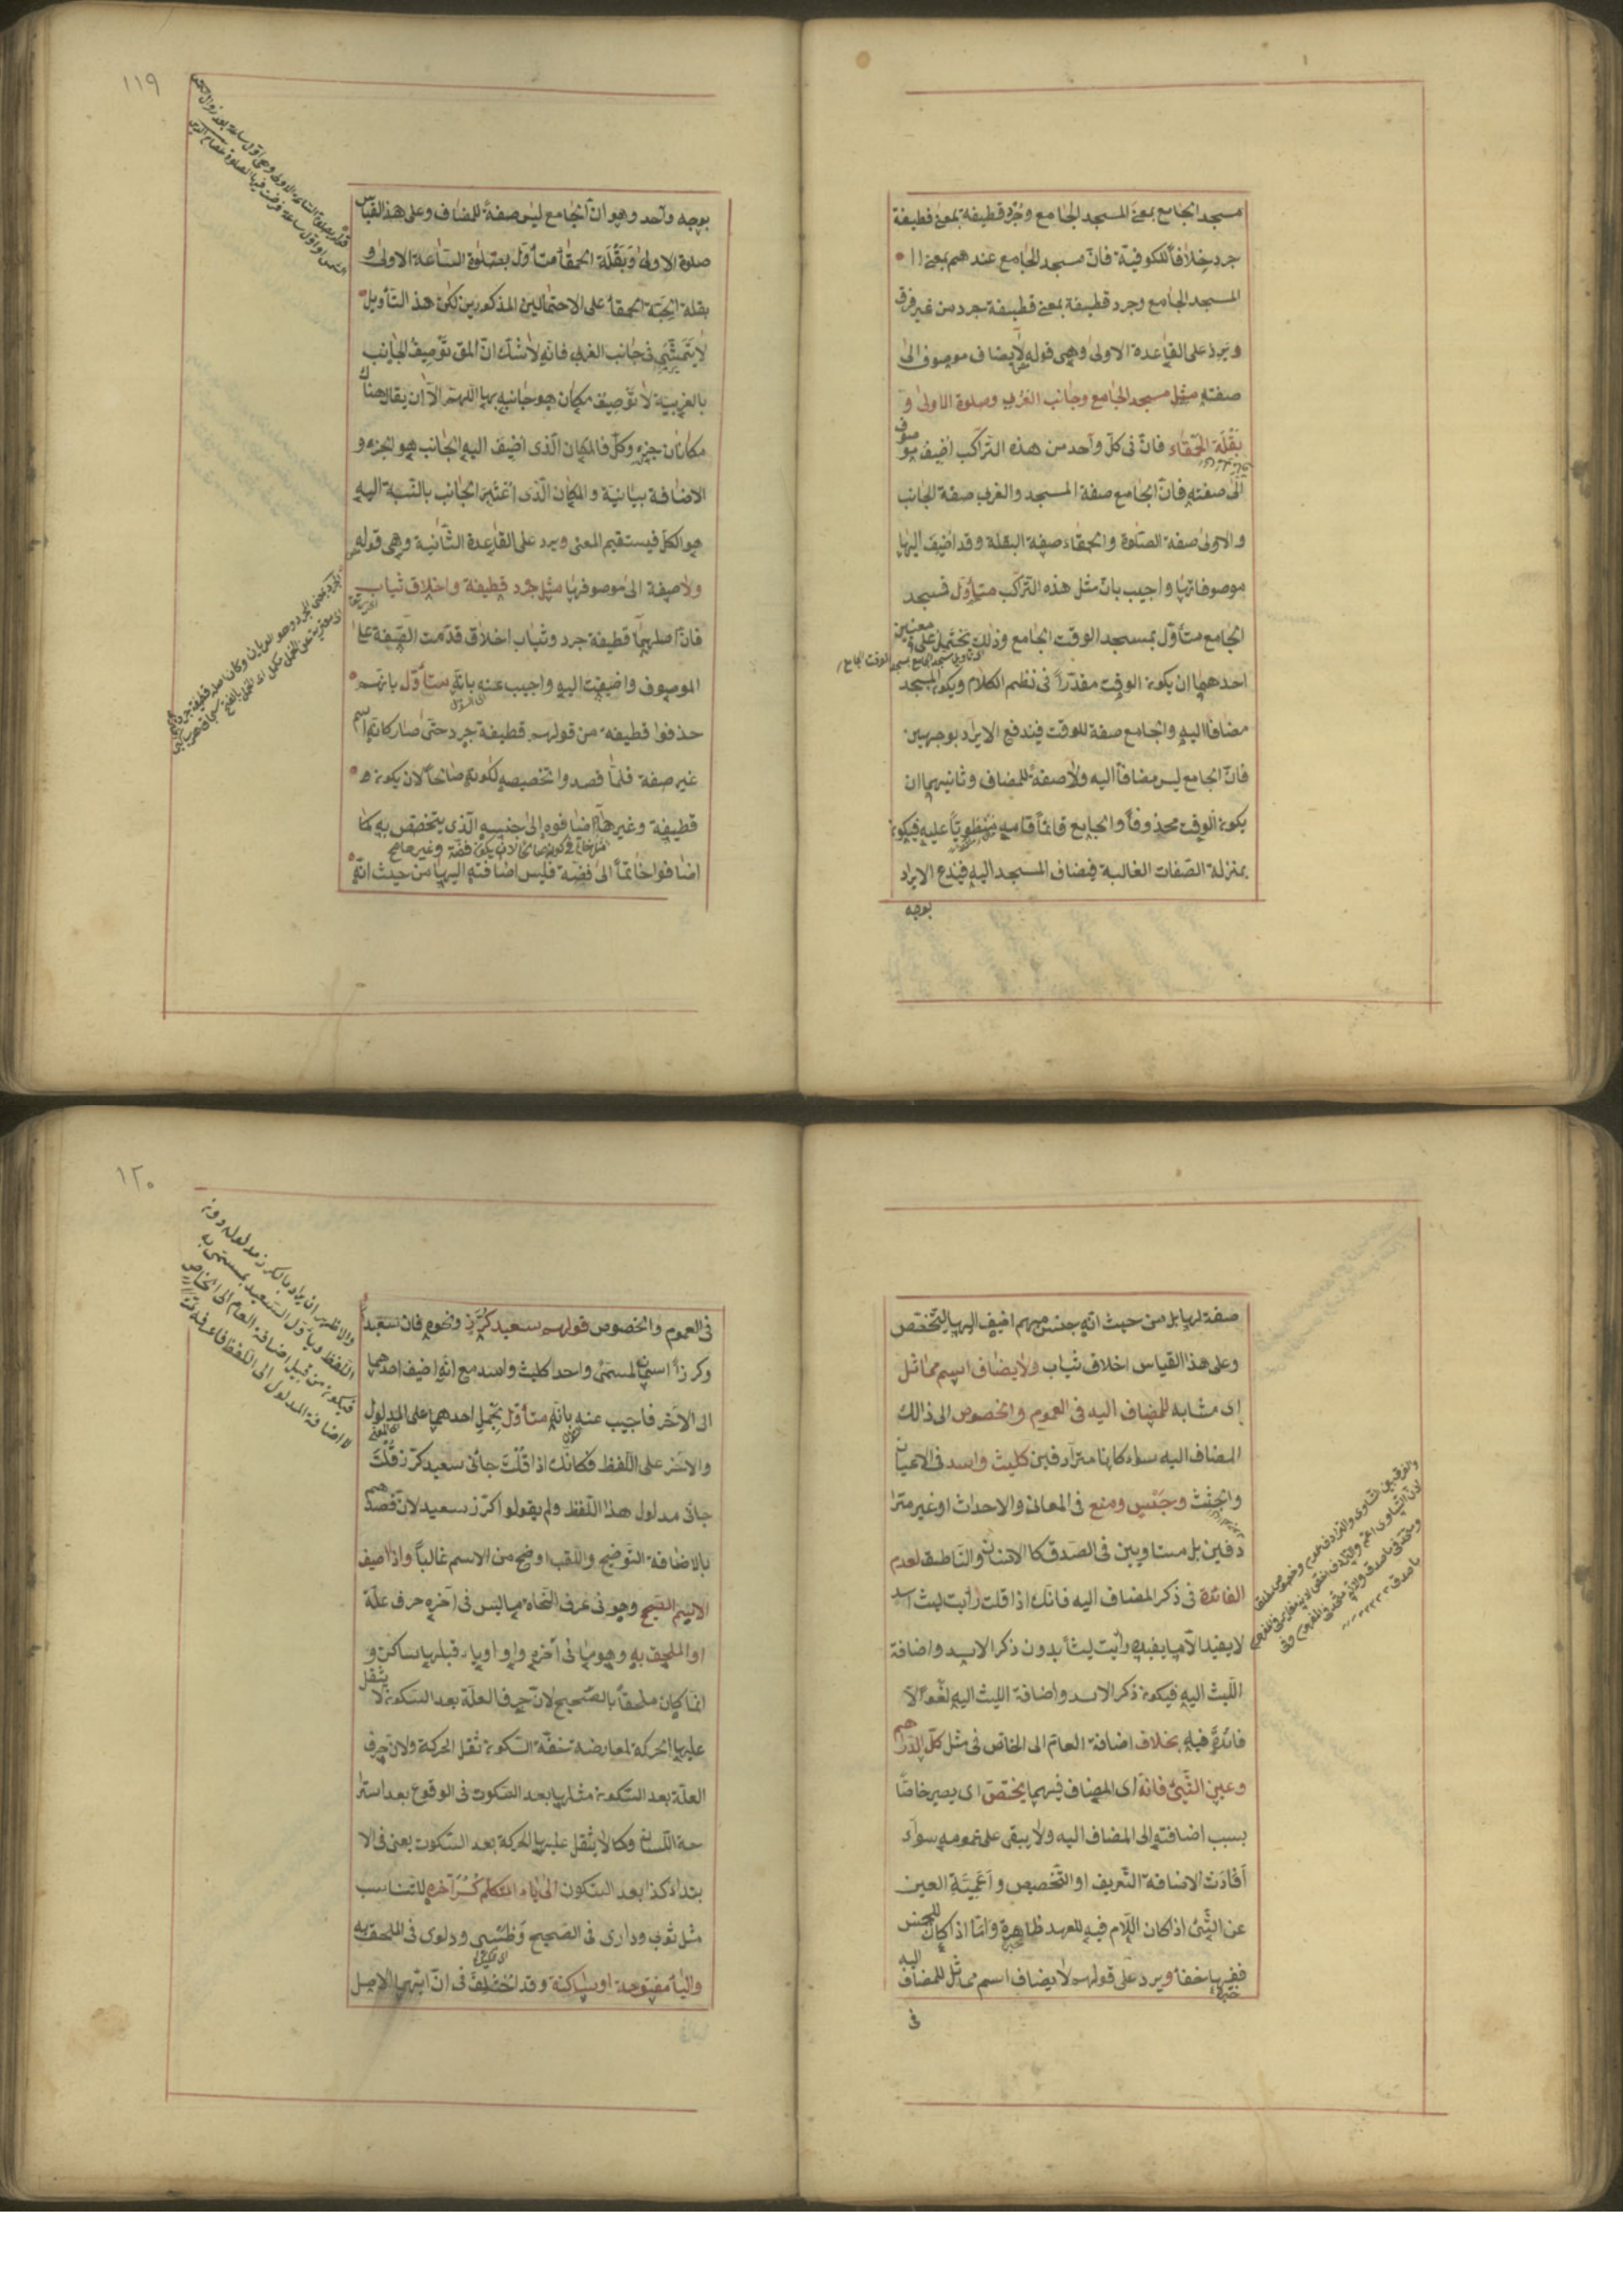 مسجد الجامع بمعنى المسجد الجامع وجرد قطيفة بمعنى قطيفة
جرد خلافا للكوفية فان مسجد الجامع عندهم بمعنى ا ا
المسجد الجامع وجرد قطيفة بمعنى قطيفة جرد من غير فرق
ويرد على القاعدة الاولى وهى قوله لا يضاف موصوف الى
صفته مثل مسجد الجامع وجانب الغربى وصلوة الاولى و
بقلة الحمقاء فان فى كل واحد من هذه التراكب اضيف مو
صوف
الى صفته فان الجامع صفة المسجد والغربى صفة الجانب
والاولى صفة الصلوة والحمقاء صفة البقلة وقد اضيف اليها
موصوفاتها واجيب بان مثل هذه التراكب متأول فمسجد
الجامع متأول بمسجد الوقت الجامع وذلك يحتمل على معنيين
احدهما ان يكون الوقت مقدرا فى نظم الكلام ويكون المسجد
مضافا اليه والجامع صفة للوقت فيندفع الايراد بوجهين
فان الجامع ليس مضافا اليه ولا صفة للمضاف وثانيهما ان
يكون الوقت محذوفا والجامع قائما قامه منطويا عليه فيكون
بمنزلة الصفات الغالبة فيضاف المسجد اليه فيندفع الايراد
بوجه
١١٩
بوجه واحد وهو ان الجامع ليس صفة للمضاف وعلى هذا القياس
صلوة الاولى وبقلة الحمقأ متأول بصلوة الساعة الاولى و
بقلة الحبة الحمقأ على الاحتمالين المذكورين لكن هذا التأويل
لا يتمشى فى جانب الغربى فانه لا شك ان المق توصيف الجانب
بالغربية لا توصيف مكان هو جانبه بها اللهم الا ان يقال هناك
مكانان جزء وكل فالمكان الذى اضيف اليه الجانب هو الجزء و
الاضافة بيانية والمكان الذى اعتبر الجانب بالنسبة اليه
هو الكل فيستقيم المعنى ويرد على القاعدة الثانية وهى قوله
ولا صفة الى موصوفها مثل جرد قطيفة واخلاق ثياب
فان اصلهما قطيفة جرد وثياب اخلاق قدمت الصفة على
الموصوف واضيفت اليه واجيب عنه بانه متأول بانهم
حذفوا قطيفة من قولهم قطيفة جرد حتى صار كانه اسم
غير صفة فلما قصدوا تخصيصه لكونه صالحا لان يكون
قطيفة وغيرها اضافوه الى جنسه الذى يتخصص به كما
اضافوا خاتما الى فضة فليس اضافته اليها من حيث انه
صفة لها بل من حيث انه جنس مبهم اضيف اليها ليتخصص
وعلى هذا القياس اخلاق ثياب ولا يضاف اسم مماثل
اى مشابه للمضاف اليه فى العموم والخصوص الى ذالك
المضاف اليه سواء كانا مترادفين كليث واسد فى الاعيان
والجثث وحبس ومنع فى المعانى والاحداث او غير مترا
دفين بل متساويين فى الصدق كالانسان والناطق لعدم
الفائدة فى ذكر المضاف اليه فانك اذا قلت رأيت ليث اسد
لا يفيد الا ما يفيده رأيت ليثا بدون ذكر الاسد واضافة
الليث اليه فيكون ذكر الاسد واضافة الليث اليه لغوا لا
فائدة فيه بخلاف اضافة العام الى الخاص فى مثل كل الدراهم
وعين الشئ فانه اى المضاف فيهما يختص اى يصير خاصا
بسبب اضافته الى المضاف اليه ولا يبقى على عمومه سواء
أفادت الاضافة التعريف او التخصيص واعمية العين
عن الشئ اذا كان اللام فيه للعهد ظاهرة واما اذا كان للجنس
ففيها خفأ ويرد على قولهم لا يضاف اسم مماثل للمضاف اليه
فى
١٢٠
فى العموم والخصوص قولهم سعيد كرز ونحوه فان سعيدا
وكرزا اسمان لمسمى واحد كليث واسد مع انه اضيف احدهما
الى الآخر فاجيب عنه بانه متأول بحمل احدهما على المدلول
والآخر على اللفظ فكانك اذا قلت جائى سعيد كرز قلت
جائى مدلول هذا اللفظ ولم يقولوا كرز سعيد لان قصدهم
بالاضافة التوضيح واللقب اوضح من الاسم غالبا واذا اضيف
الاسم الصحيح وهو فى عرف النحاة ما ليس فى آخره حرف علة
او الملحق به وهو ما فى آخره واو او ياء قبلها ساكن و
انما كان ملحقا بالصحيح لان حرف العلة بعد السكون لا يثقل
عليها الحركة لمعارضة خفة السكون ثقل الحركة ولان حرف
العلة بعد السكون مثلها بعد السكوت فى الوقوع بعد استرا
حة اللسان وكما لا يثقل عليها الحركة بعد السكوت يعنى فى الا
بتداء كذا بعد السكون الى ياء المتكلم كسر آخره للتناسب
مثل ثوبى ودارى فى الصحيح وظبيى ودلوى فى الملحق به
والياء مفتوحة او ساكنة وقد اختلف فى ان ايهما الاصل
والاظهر ان يراد بالكرز مدلوله دون
اللفظ ويأول السعيد بمسمى به
فيكون من قبيل اضافة العام الى الخاص
لا اضافة المدلول الى اللفظ فاعرفه